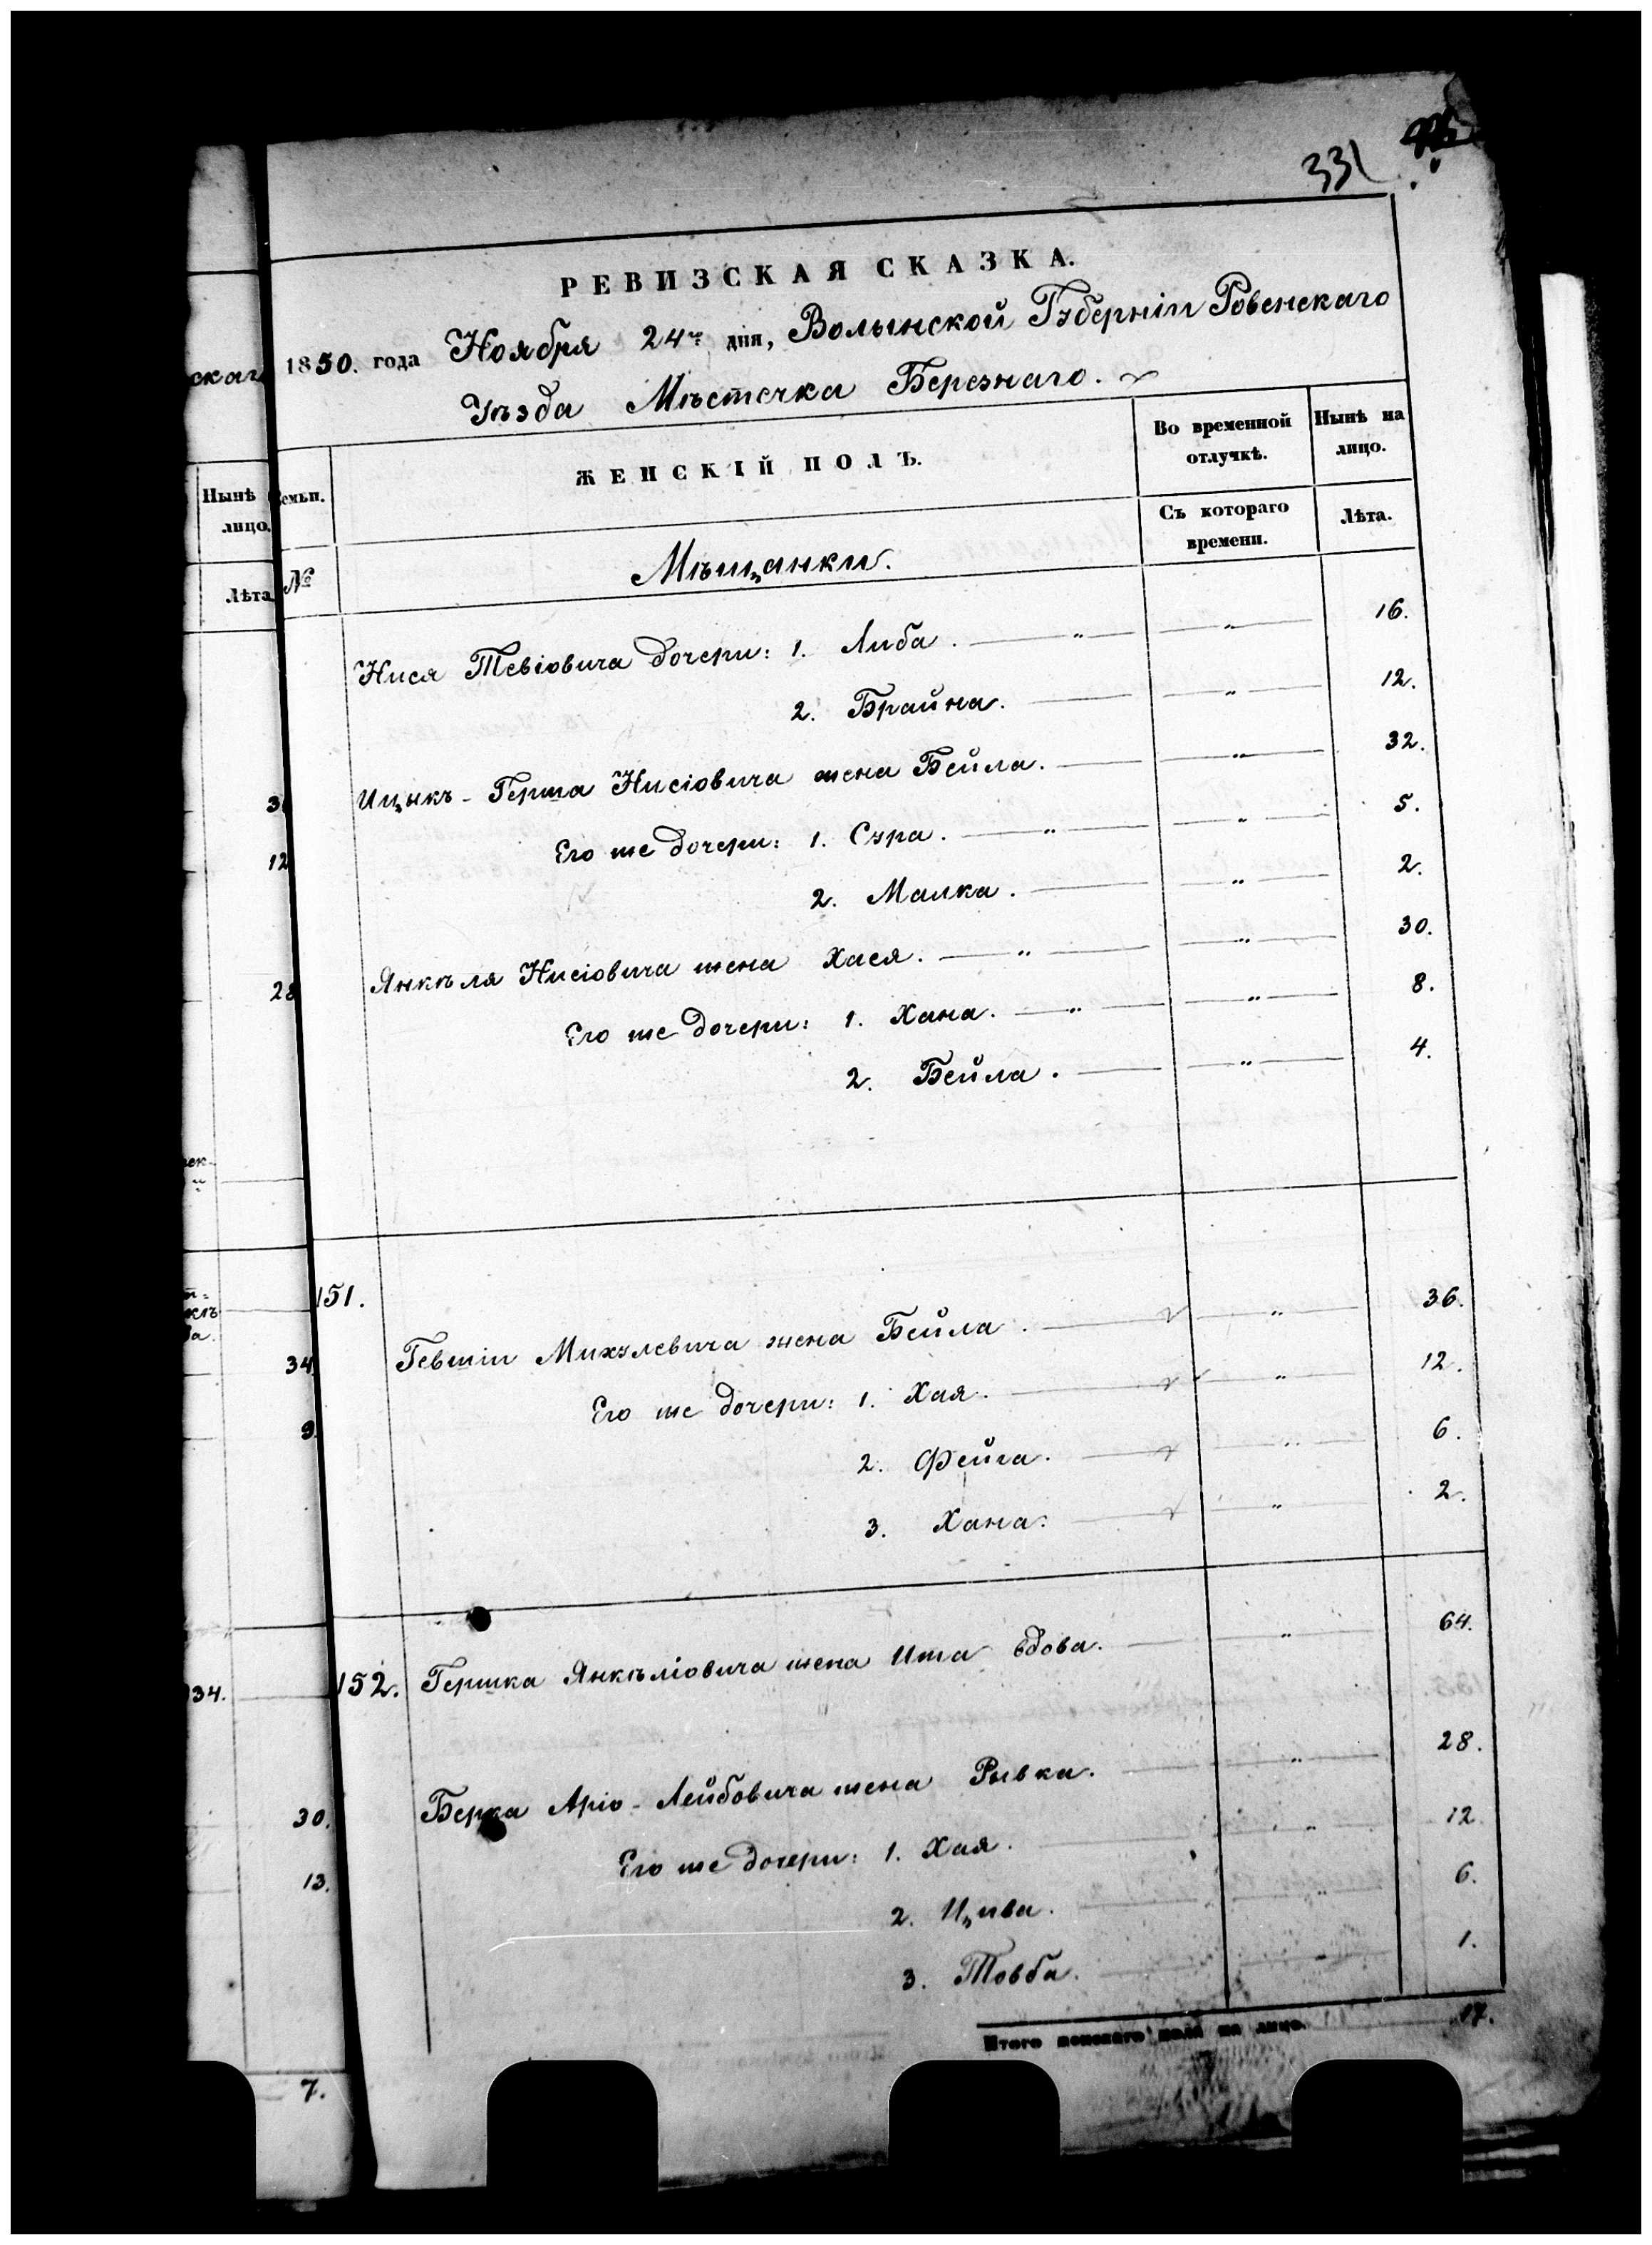 331
РЕВИЗСКАЯ СКАЗКА.
1850. года Ноября 24го дня, Волынской Губерніи Ровенскаго
Уѣзда Мѣстечка Березнаго.
скаг
Нынѣ
лицо.
Лѣта.
Семьи.
ЖЕНСКІЙ ПОЛЪ.
Во временной
отлучкѣ.
Нынѣ на
лицо.
№
Мѣщанки.
Съ котораго
времени.
Лѣта.
Нися Тевіовича дочери: 1. Либа. — „ — — „ — 16.
2. Брайна. — — „ — 12.
3
Ицыкъ-Герша Нисіовича жена Бейла. — — „ — 32.
12
Его же дочери: 1. Сура. — „ — — „ — 5.
2. Малка. — — „ — 2.
28
Янкѣля Нисіовича жена Хася. — „ — — „ — 30.
Его же дочери: 1. Хана. — „ — — „ — 8.
2. Бейла. — — „ — 4.
151.
34
Гевшіи Михулевича жена Бейла. — — „ — 36.
9
Его же дочери: 1. Хая. — — „ — 12.
2. Фейга. — — „ — 6.
3. Хана. — — „ — 2.
34.
152. Гершка Янкѣліовича жена Ита вдова. — — „ — 64.
30.
Берка Аріо-Лейбовича жена Рывка. — — „ — 28.
13.
Его же дочери: 1. Хая. — — „ — 12
2. Цива. — — „ — 6.
3. Товба. — — „ — 1.
Итого женскаго пола на лицо. 17.
7.